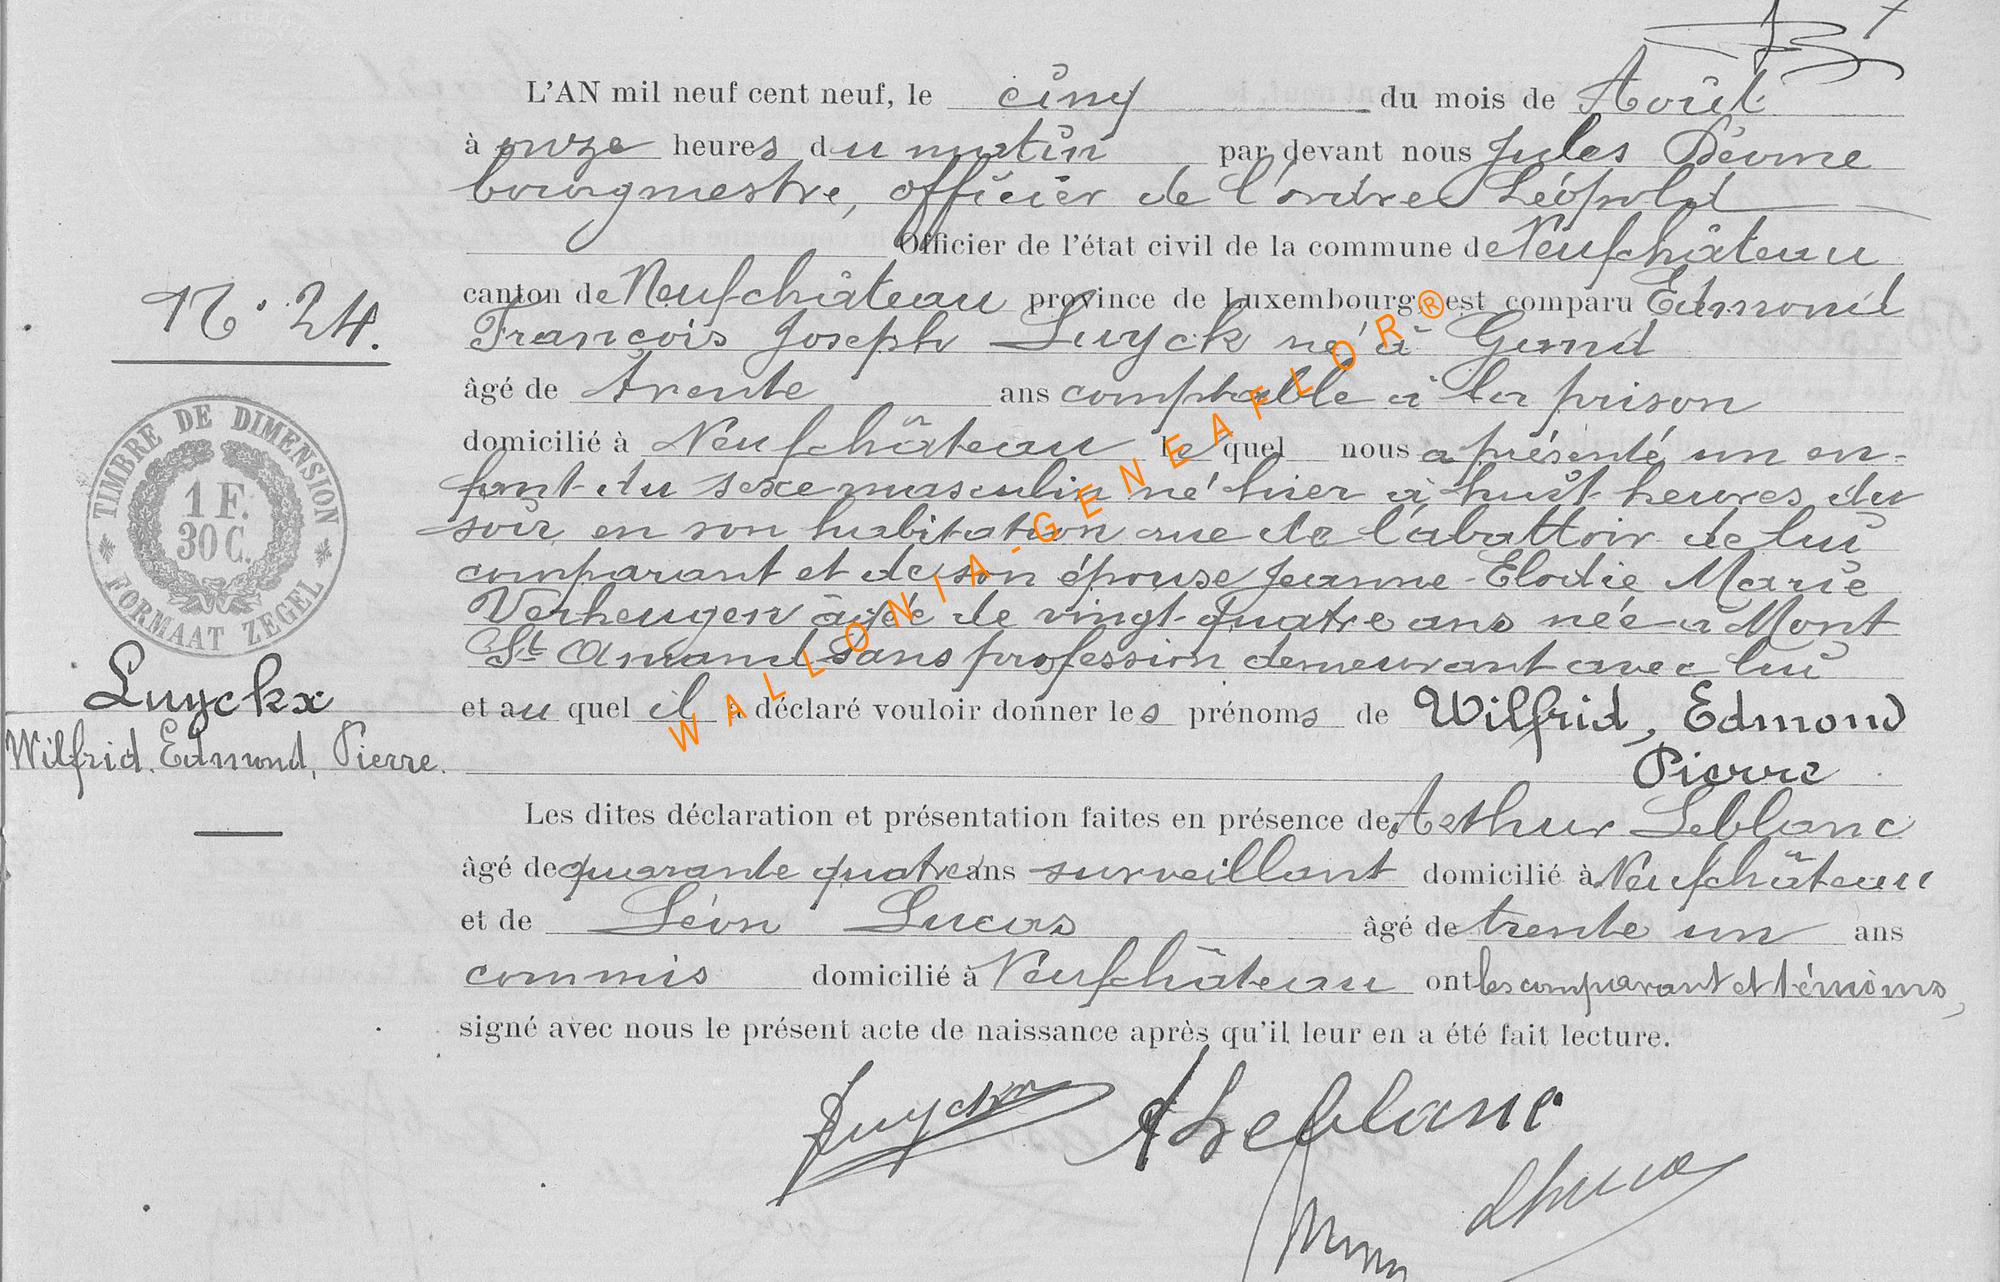 L'AN mil neuf cent neuf, le cinq du mois de Août
à onze heures du matin par devant nous Jules
bourgmestre, officier de l'ordre Léopold
Officier de l'état civil de la commune de Neufchâteau
N° 24.
canton de Neufchâteau province de Luxembourg est comparu Edmond
François Joseph Luyck né à Gand
âgé de trente ans comptable à la prison
domicilié à Neufchâteau lequel nous a présenté un en-
fant du sexe masculin né hier à huit heures du
soir en son habitation rue de l'abattoir de lui
comparant et de son épouse Jeanne-Elodie Marie
Verheugen âgée de vingt-quatre ans née à Mont
St Amand sans profession demeurant avec lui
et au quel il a déclaré vouloir donner les prénoms de Wilfrid, Edmond
Pierre
TIMBRE DE DIMENSION
1 F.
30 C.
FORMAAT ZEGEL
Luyckx
Wilfrid, Edmond, Pierre.
Les dites déclaration et présentation faites en présence de Arthur Leblanc
âgé de quarante quatre ans surveillant domicilié à Neufchâteau
et de Léon Lucas âgé de trente un ans
commis domicilié à Neufchâteau ont les comparant et témoins,
signé avec nous le présent acte de naissance après qu'il leur en a été fait lecture.
Luyckx ALeblanc
WALLONIA-GENEAFLOR®